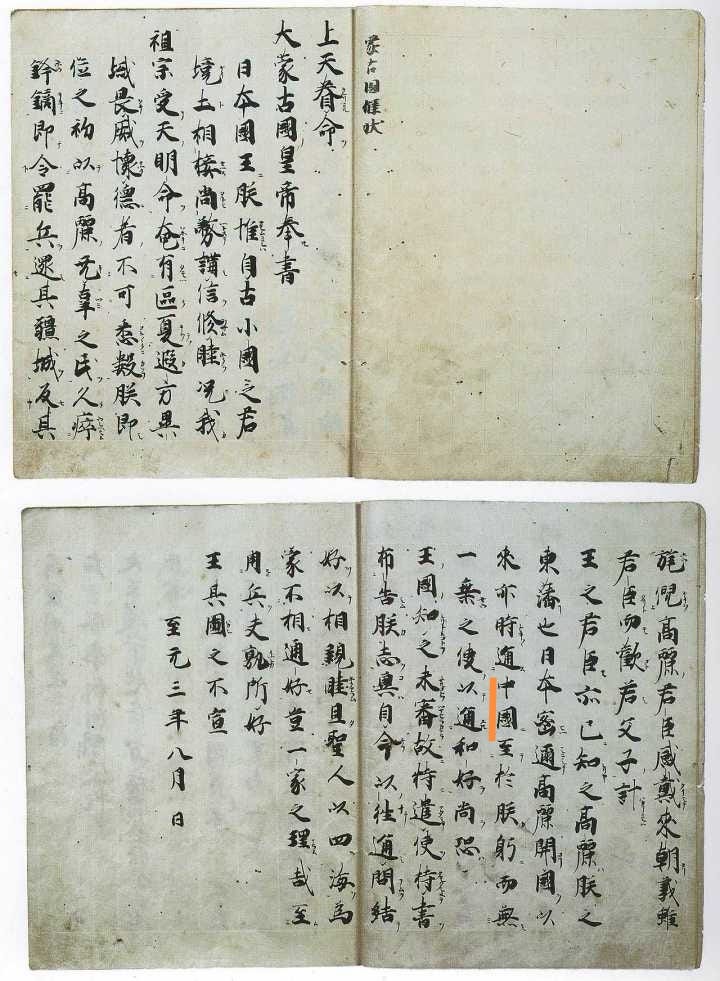 蒙古国牒状
上天眷命
大蒙古國皇帝奉書
日本國王朕惟自古小國之君
境土相接尚務講信修睦况我
祖宗受天明命奄有區夏遐方異
域畏威懐德者不可悉數朕即
位之初以高麗无辜之民久瘁
鋒鏑即令罷兵還其疆城反其
旄倪高麗君臣感戴來朝義雖
君臣而歡若父子計
王之君臣亦已知之高麗朕之
東藩也日本密邇高麗開國以
來亦時通中國至於朕躬而無
一乗之使以通和好尚恐
王國知之未審故特遣使持書
布告朕志冀自今以往通問結
好以相親睦且聖人以四海為
家不相通好豈一家之理哉至
用兵夫孰所好
王其圖之不宣
至元三年八月日